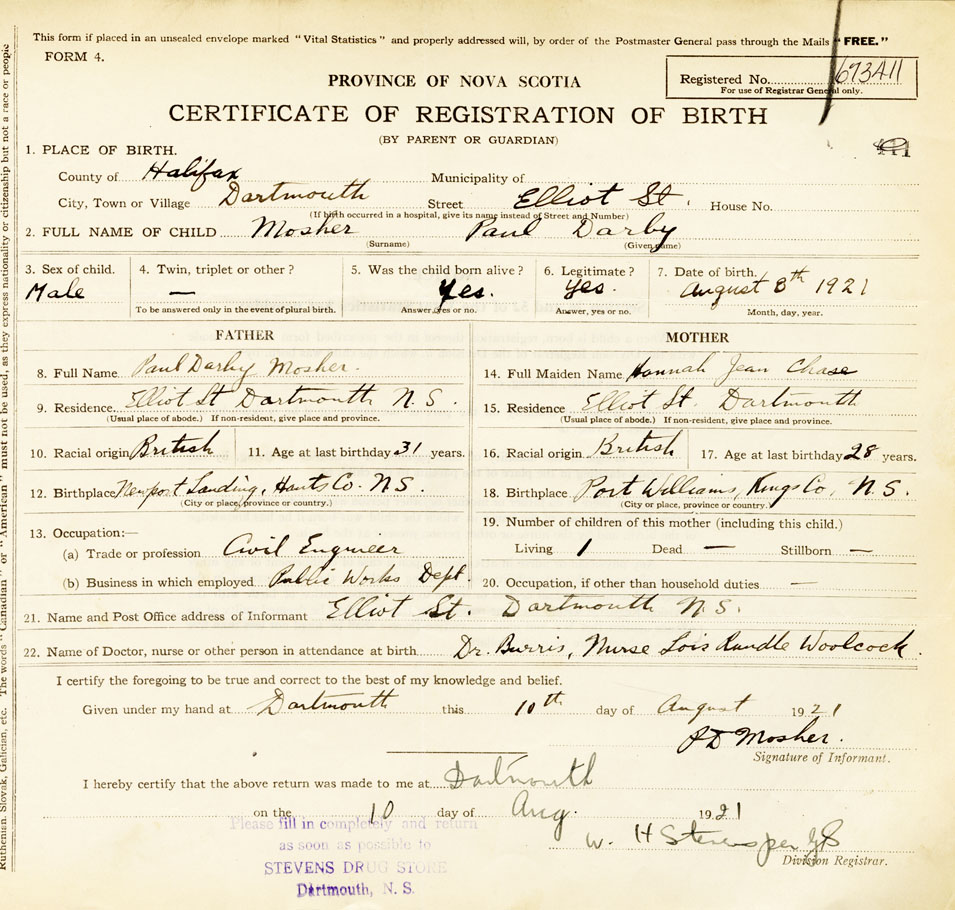 This form if placed in an unsealed envelope marked "Vital Statistics" and properly addressed will, by order of the Postmaster General pass through the Mails "FREE."
FORM 4.
Registered No. 673411
For use of Registrar General only.
PROVINCE OF NOVA SCOTIA
CERTIFICATE OF REGISTRATION OF BIRTH
(BY PARENT OR GUARDIAN)
1. PLACE OF BIRTH.
County of Halifax Municipality of
City, Town or Village Dartmouth Street Elliot St. House No.
(If birth occurred in a hospital, give its name instead of Street and Number)
2. FULL NAME OF CHILD Mosher Paul Darby
(Surname) (Given name)
3. Sex of child. 4. Twin, triplet or other? 5. Was the child born alive? 6. Legitimate? 7. Date of birth.
Male — Yes. Yes. August 8th 1921
To be answered only in the event of plural birth. Answer, yes or no. Answer, yes or no. Month, day, year.
FATHER
8. Full Name Paul Darby Mosher.
9. Residence. Elliot St Dartmouth N.S.
(Usual place of abode.) If non-resident, give place and province.
10. Racial origin British 11. Age at last birthday 31 years.
12. Birthplace Newport Landing, Hants Co. N.S.
(City or place, province or country.)
13. Occupation:—
(a) Trade or profession Civil Engineer
(b) Business in which employed Public Works Dept.
MOTHER
14. Full Maiden Name Hannah Jean Chase
15. Residence Elliot St. Dartmouth
(Usual place of abode.) If non-resident, give place and province.
16. Racial origin British 17. Age at last birthday 28 years.
18. Birthplace Port Williams, Kings Co, N.S.
(City or place, province or country.)
19. Number of children of this mother (including this child.)
Living 1 Dead — Stillborn —
20. Occupation, if other than household duties —
21. Name and Post Office address of Informant Elliot St. Dartmouth N.S.
22. Name of Doctor, nurse or other person in attendance at birth Dr. Burris, Nurse Lois Rundle Woolcock.
I certify the foregoing to be true and correct to the best of my knowledge and belief.
Given under my hand at Dartmouth this 10th day of August 1921
P D Mosher.
Signature of Informant.
I hereby certify that the above return was made to me at Dartmouth
on the 10 day of Aug. 1921
W. H Stevens per
Division Registrar.
Please fill in completely and return
as soon as possible to
STEVENS DRUG STORE
Dartmouth, N. S.
Ruthenian, Slovak, Galician, etc. The words "Canadian" or "American" must not be used, as they express nationality or citizenship but not a race or people